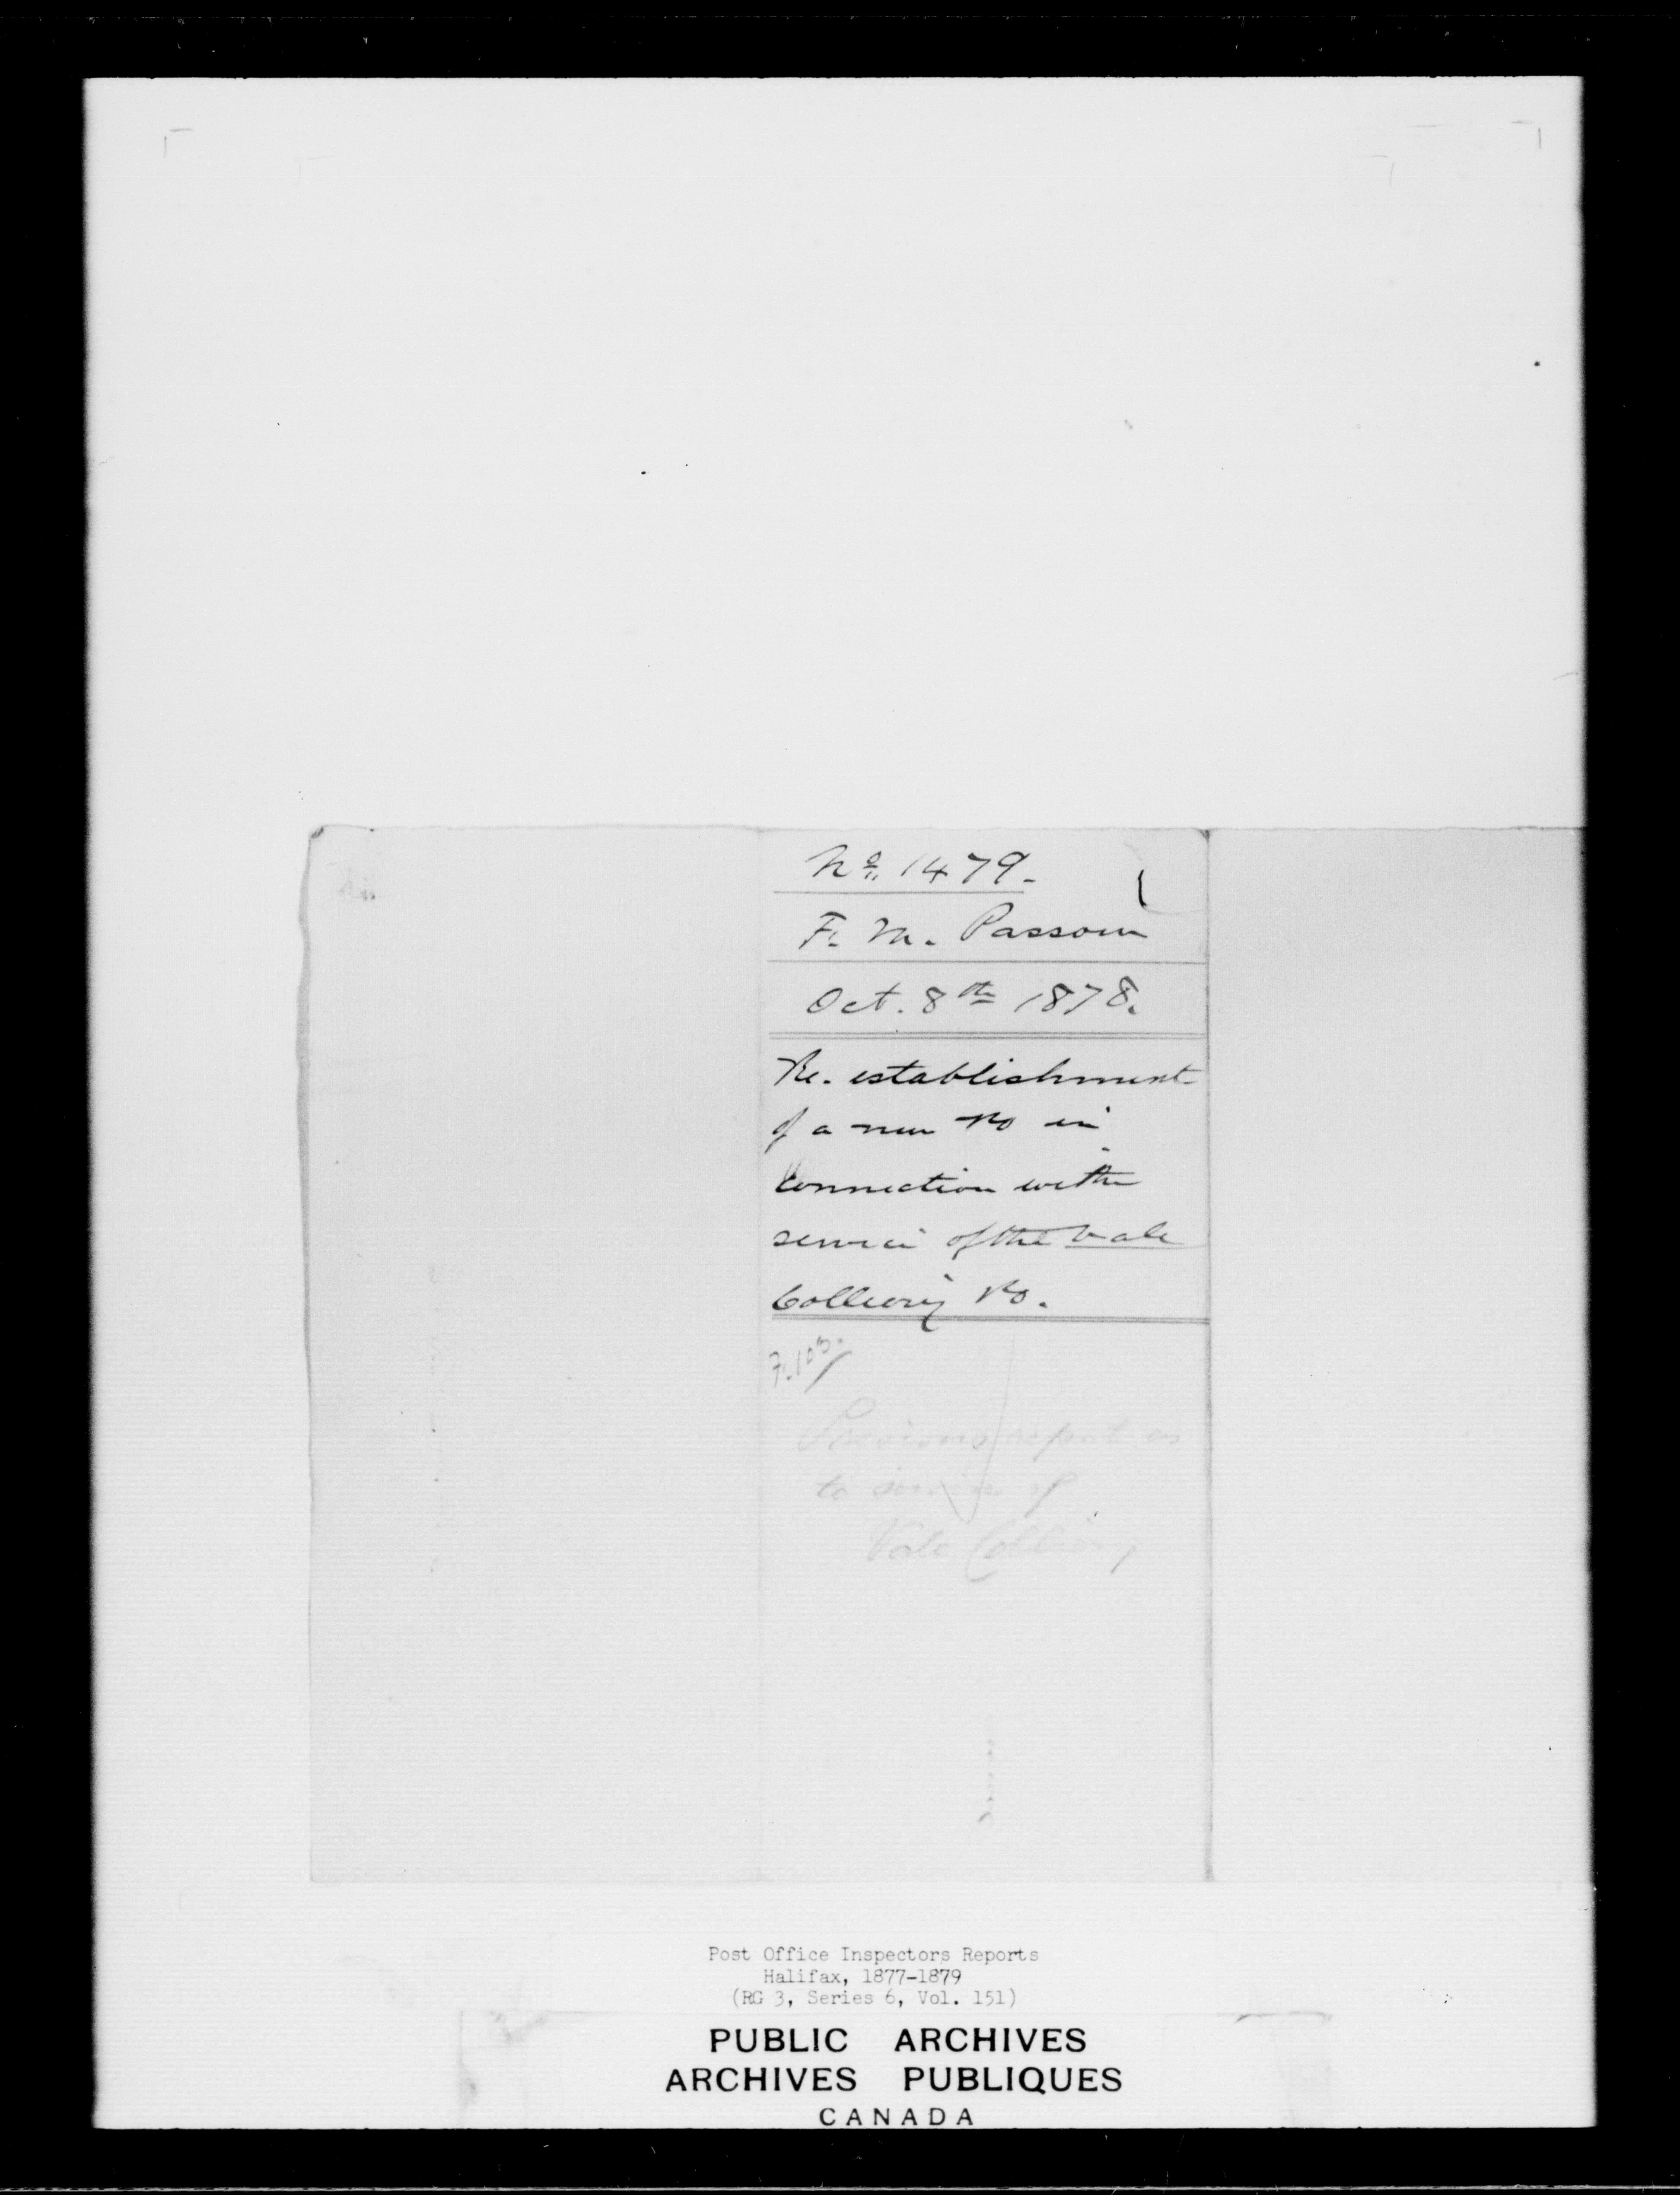 No. 1479.
F. M. Passow
Oct. 8th 1878.
Re. establishment
of a new PO in
connection with
service of the Vale
Colliery PO.
Previous report as
to service of
Vale Colliery
Post Office Inspectors Reports
Halifax, 1877-1879
(RG 3, Series 6, Vol. 151)
PUBLIC ARCHIVES
ARCHIVES PUBLIQUES
CANADA